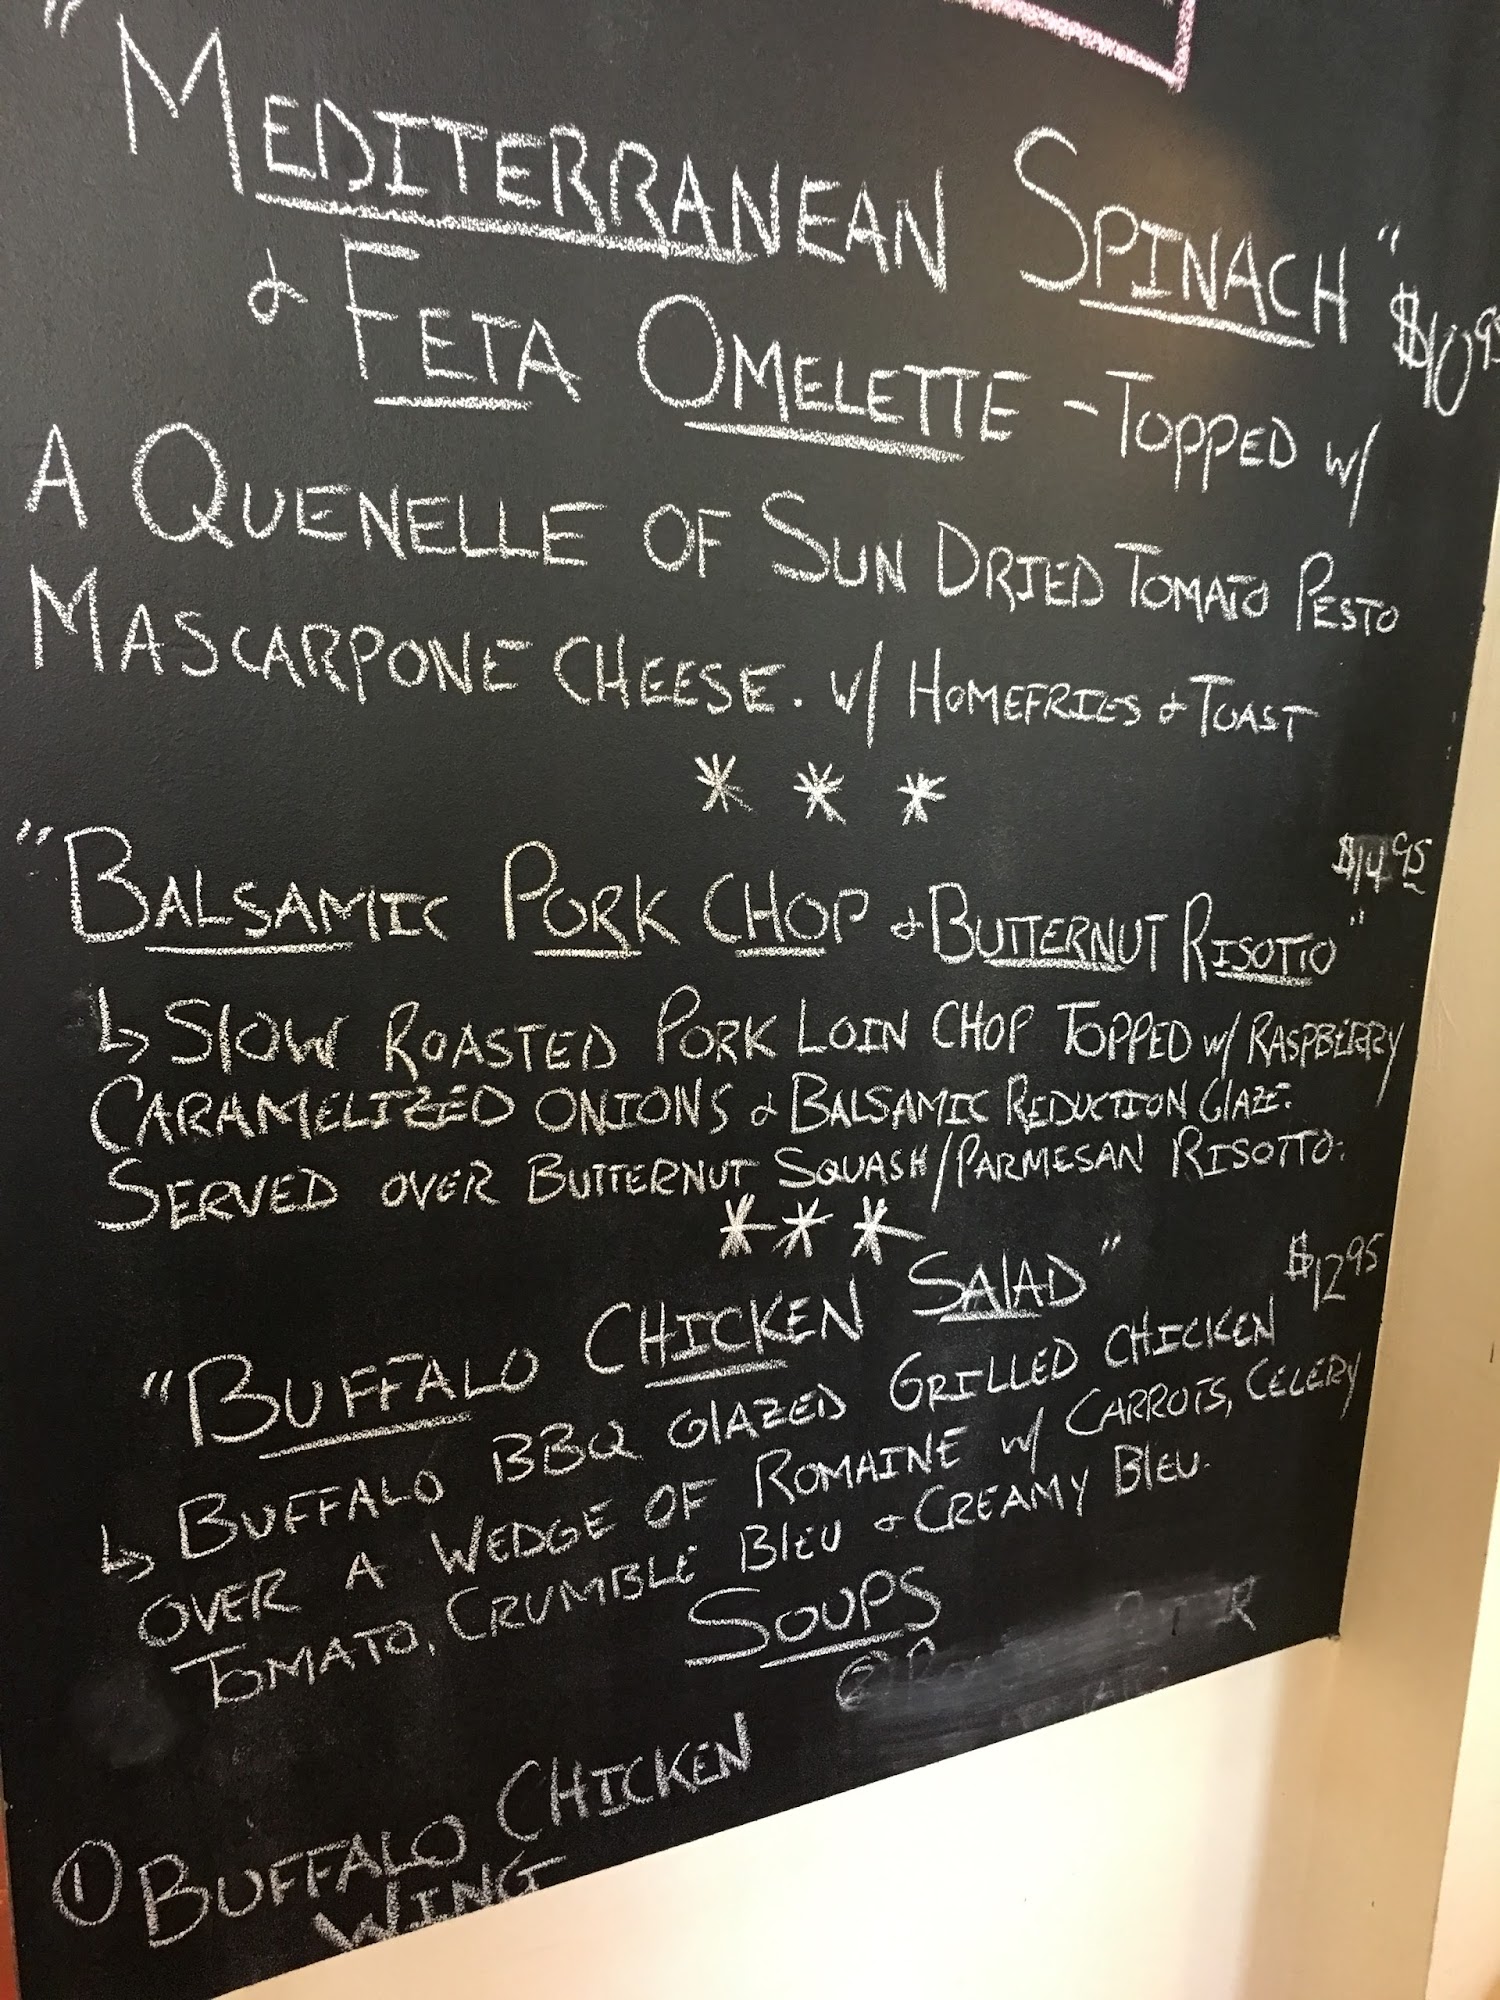 "MEDITERRANEAN SPINACH"
& FETA OMELETTE - TOPPED w/ $10.95
A QUENELLE OF SUN DRIED TOMATO PESTO
MASCARPONE CHEESE. w/ HOMEFRIES & TOAST
* * *
$14.95
"BALSAMIC PORK CHOP & BUTTERNUT RISOTTO"
↳ SLOW ROASTED PORK LOIN CHOP TOPPED w/ RASPBERRY
CARAMELIZED ONIONS & BALSAMIC REDUCTION GLAZE.
SERVED OVER BUTTERNUT SQUASH/PARMESAN RISOTTO.
* * *
"BUFFALO CHICKEN SALAD" $12.95
↳ BUFFALO BBQ GLAZED GRILLED CHICKEN
OVER A WEDGE OF ROMAINE w/ CARROTS, CELERY
TOMATO, CRUMBLE BLEU & CREAMY BLEU.
SOUPS
②
① BUFFALO CHICKEN
WING